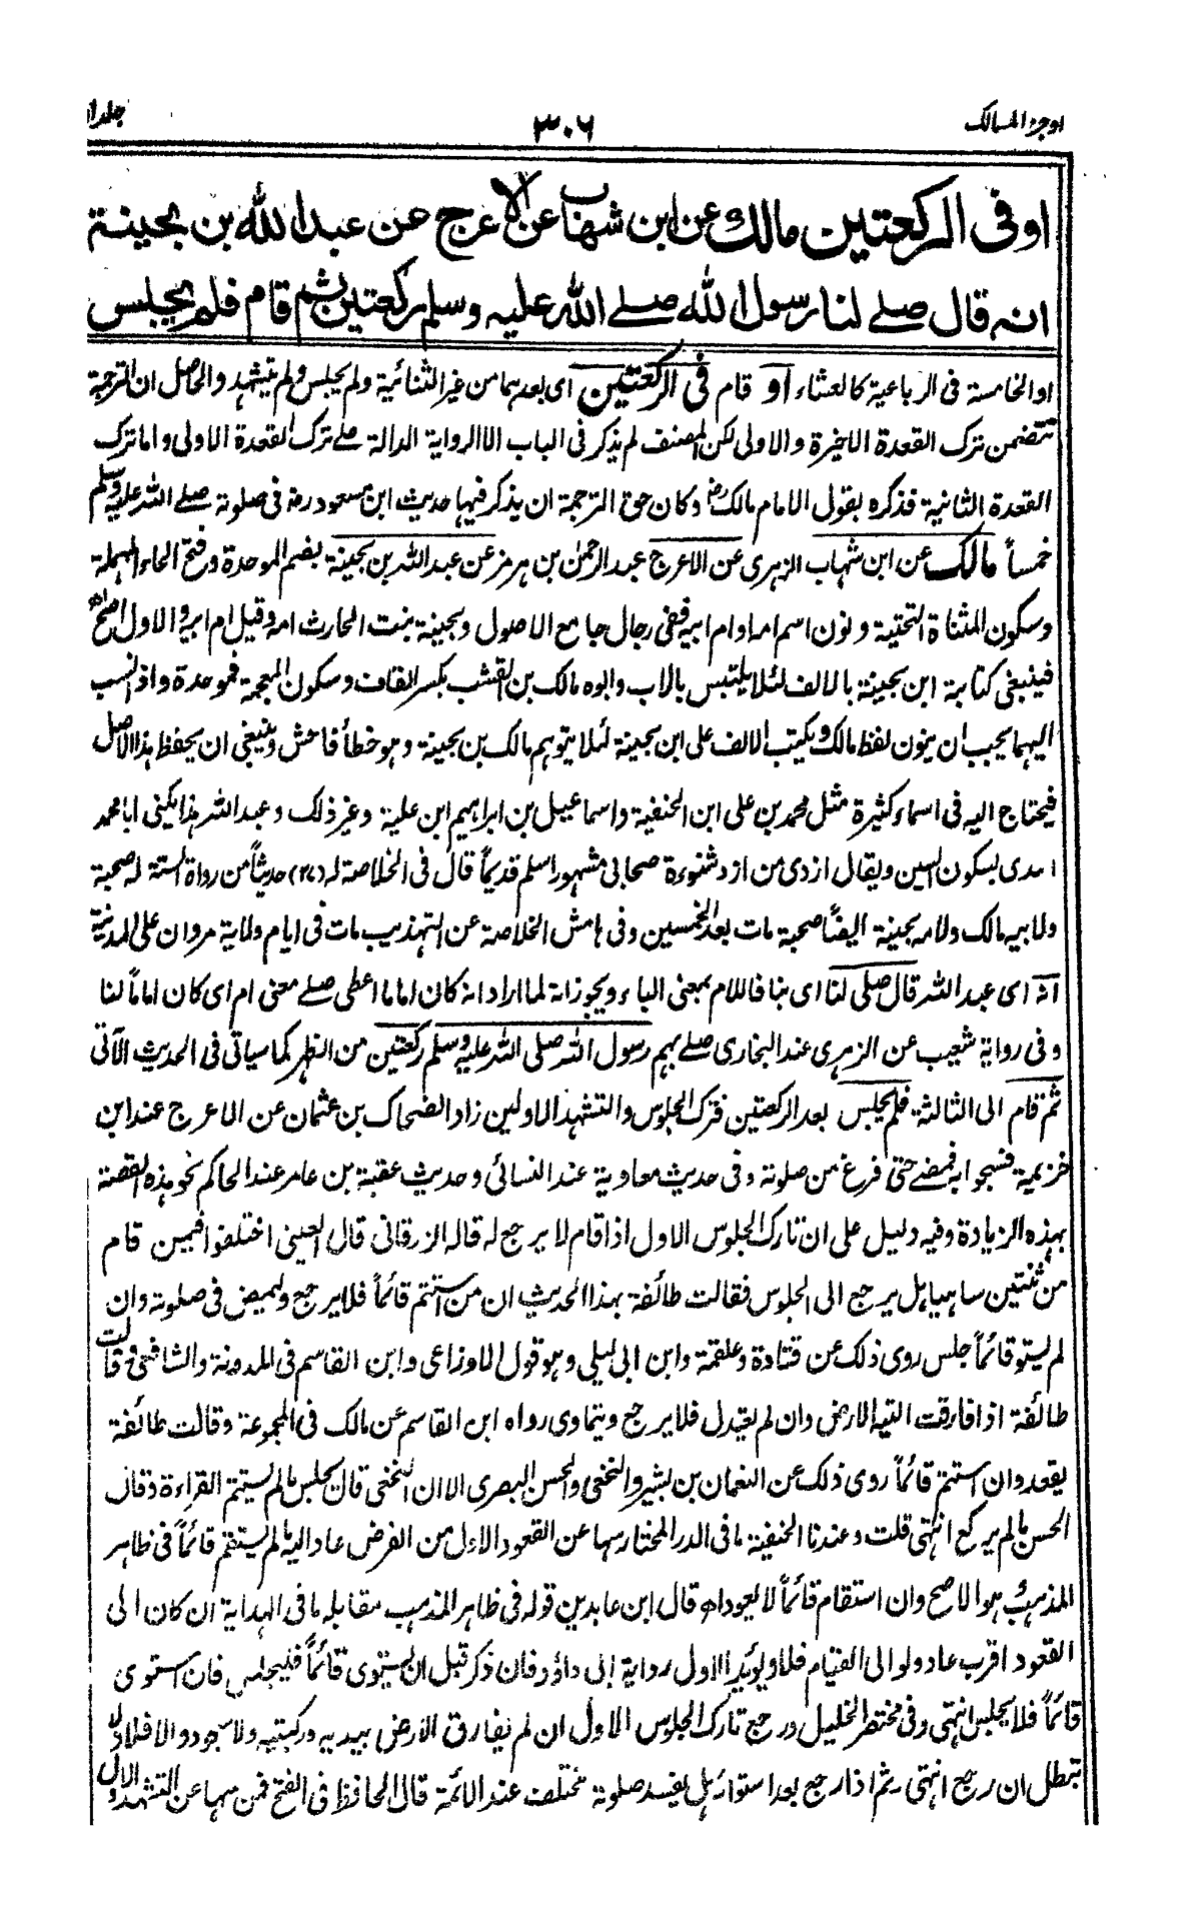 اوجز المسالك
٣٠٦
جلد ا
او فى الركعتين مالك عن ابن شهاب عن الاعرج عن عبد الله بن بحينة
انه قال صلے لنا رسول الله صلے الله عليه وسلم ركعتين ثم قام فلم يجلس
او الخامسة فى الرباعية كالعشاء او قام فى الركعتين اى بعدهما من غير الثنائية ولم يجلس ولم يتشهد والحاصل ان الترجمة
تتضمن ترك القعدة الاخيرة والاولى لكن المصنف لم يذكر فى الباب الا الرواية الدالة علے ترك القعدة الاولى واما ترك
القعدة الثانية فذكره بقول الامام مالك رض وكان حق الترجمة ان يذكر فيها حديث ابن مسعود رض فى صلوته صلے الله عليه وسلم
خمساً مالك عن ابن شهاب الزهرى عن الاعرج عبد الرحمن بن هرمز عن عبد الله بن بحينة بضم الموحدة وفتح الحاء المهملة
وسكون المثناة التحتية ونون اسم امه او ام ابيه ففى رجال جامع الاصول وبحينة بنت الحارث امه وقيل ام ابيه والاول اصح اھ
فينبغى كتابة ابن بحينة بالالف لئلا يلتبس بالاب وابوه مالك بن القشب بكسر القاف وسكون المعجمة فموحدة واذا نسب
اليهما يجب ان ينون لفظ مالك ويكتب الالف على ابن بحينة لئلا يتوهم مالك بن بحينة وهو خطأ فاحش وينبغى ان يحفظ هذا الاصل
فيحتاج اليه فى اسماء كثيرة مثل محمد بن على ابن الحنفية واسماعيل بن ابراهيم ابن علية وغير ذلك وعبد الله هذا يكنى ابا محمد
اسدى بسكون السين ويقال ازدى من ازد شنوءة صحابى مشهور اسلم قديماً قال فى الخلاصة له (٢٧) حديثاً من رواة الستة له صحبة
ولابيه مالك ولامه بحينة ايضاً صحبة مات بعد الخمسين وفى هامش الخلاصة عن التهذيب مات فى ايام ولاية مروان على المدينة
انه اى عبد الله قال صلى لنا اى بنا فاللام بمعنى الباء ويجوز انه لما اراد انه كان اماما اعطى صلے معنى ام اى كان اماماً لنا
وفى رواية شعيب عن الزهرى عند البخارى صلے بهم رسول الله صلى الله عليه وسلم ركعتين من الظهر كما سياتى فى الحديث الآتى
ثم قام الى الثالثة فلم يجلس بعد الركعتين فترك الجلوس والتشهد الاولين زاد الضحاك بن عثمان عن الاعرج عند ابن
خزيمة فسبحوا به فمضے حتى فرغ من صلوته وفى حديث معاوية عند النسائى وحديث عقبة بن عامر عند الحاكم نحو هذه القصة
بهذه الزيادة وفيه دليل على ان تارك الجلوس الاول اذا قام لا يرجع له قاله الزرقانى قال العينى اختلفوا فيمن قام
من ثنتين ساهيا هل يرجع الى الجلوس فقالت طائفة بهذا الحديث ان من استتم قائماً فلا يرجع وليمض فى صلوته وان
لم يستو قائماً جلس روى ذلك عن قتادة وعلقمة وابن ابى ليلى وهو قول الاوزاعى وابن القاسم فى المدونة والشافعى وقالت
طائفة اذا فارقت اليته الارض وان لم يعتدل فلا يرجع ويتمادى رواه ابن القاسم عن مالك فى المجموعة وقالت طائفة
يقعد وان استتم قائماً روى ذلك عن النعمان بن بشير والنخعى والحسن البصرى الا ان النخعى قال يجلس ما لم يستتم القراءة وقال
الحسن ما لم يركع انتهى قلت وعندنا الحنفية ما فى الدر المختار سها عن القعود الاول من الفرض عاد اليه ما لم يستقم قائماً فى ظاهر
المذهب هو الاصح وان استقام قائماً لا يعود اھ قال ابن عابدين قوله فى ظاهر المذهب مقابله ما فى الهداية ان كان الى
القعود اقرب عاد ولو الى القيام فلا ويؤيد الاول رواية ابى داؤد فان ذكر قبل ان يستوى قائماً فليجلس فان استوى
قائماً فلا يجلس انتهى وفى مختصر الخليل ورجع تارك الجلوس الاول ان لم يفارق الارض بيديه وركبتيه ولا سجود والا فلا ولا
تبطل ان رجع انتهى ثم اذا رجع بعد استوائه هل يفسد صلوته مختلف عند الائمة قال الحافظ فى الفتح فمن سها عن التشهد الاول